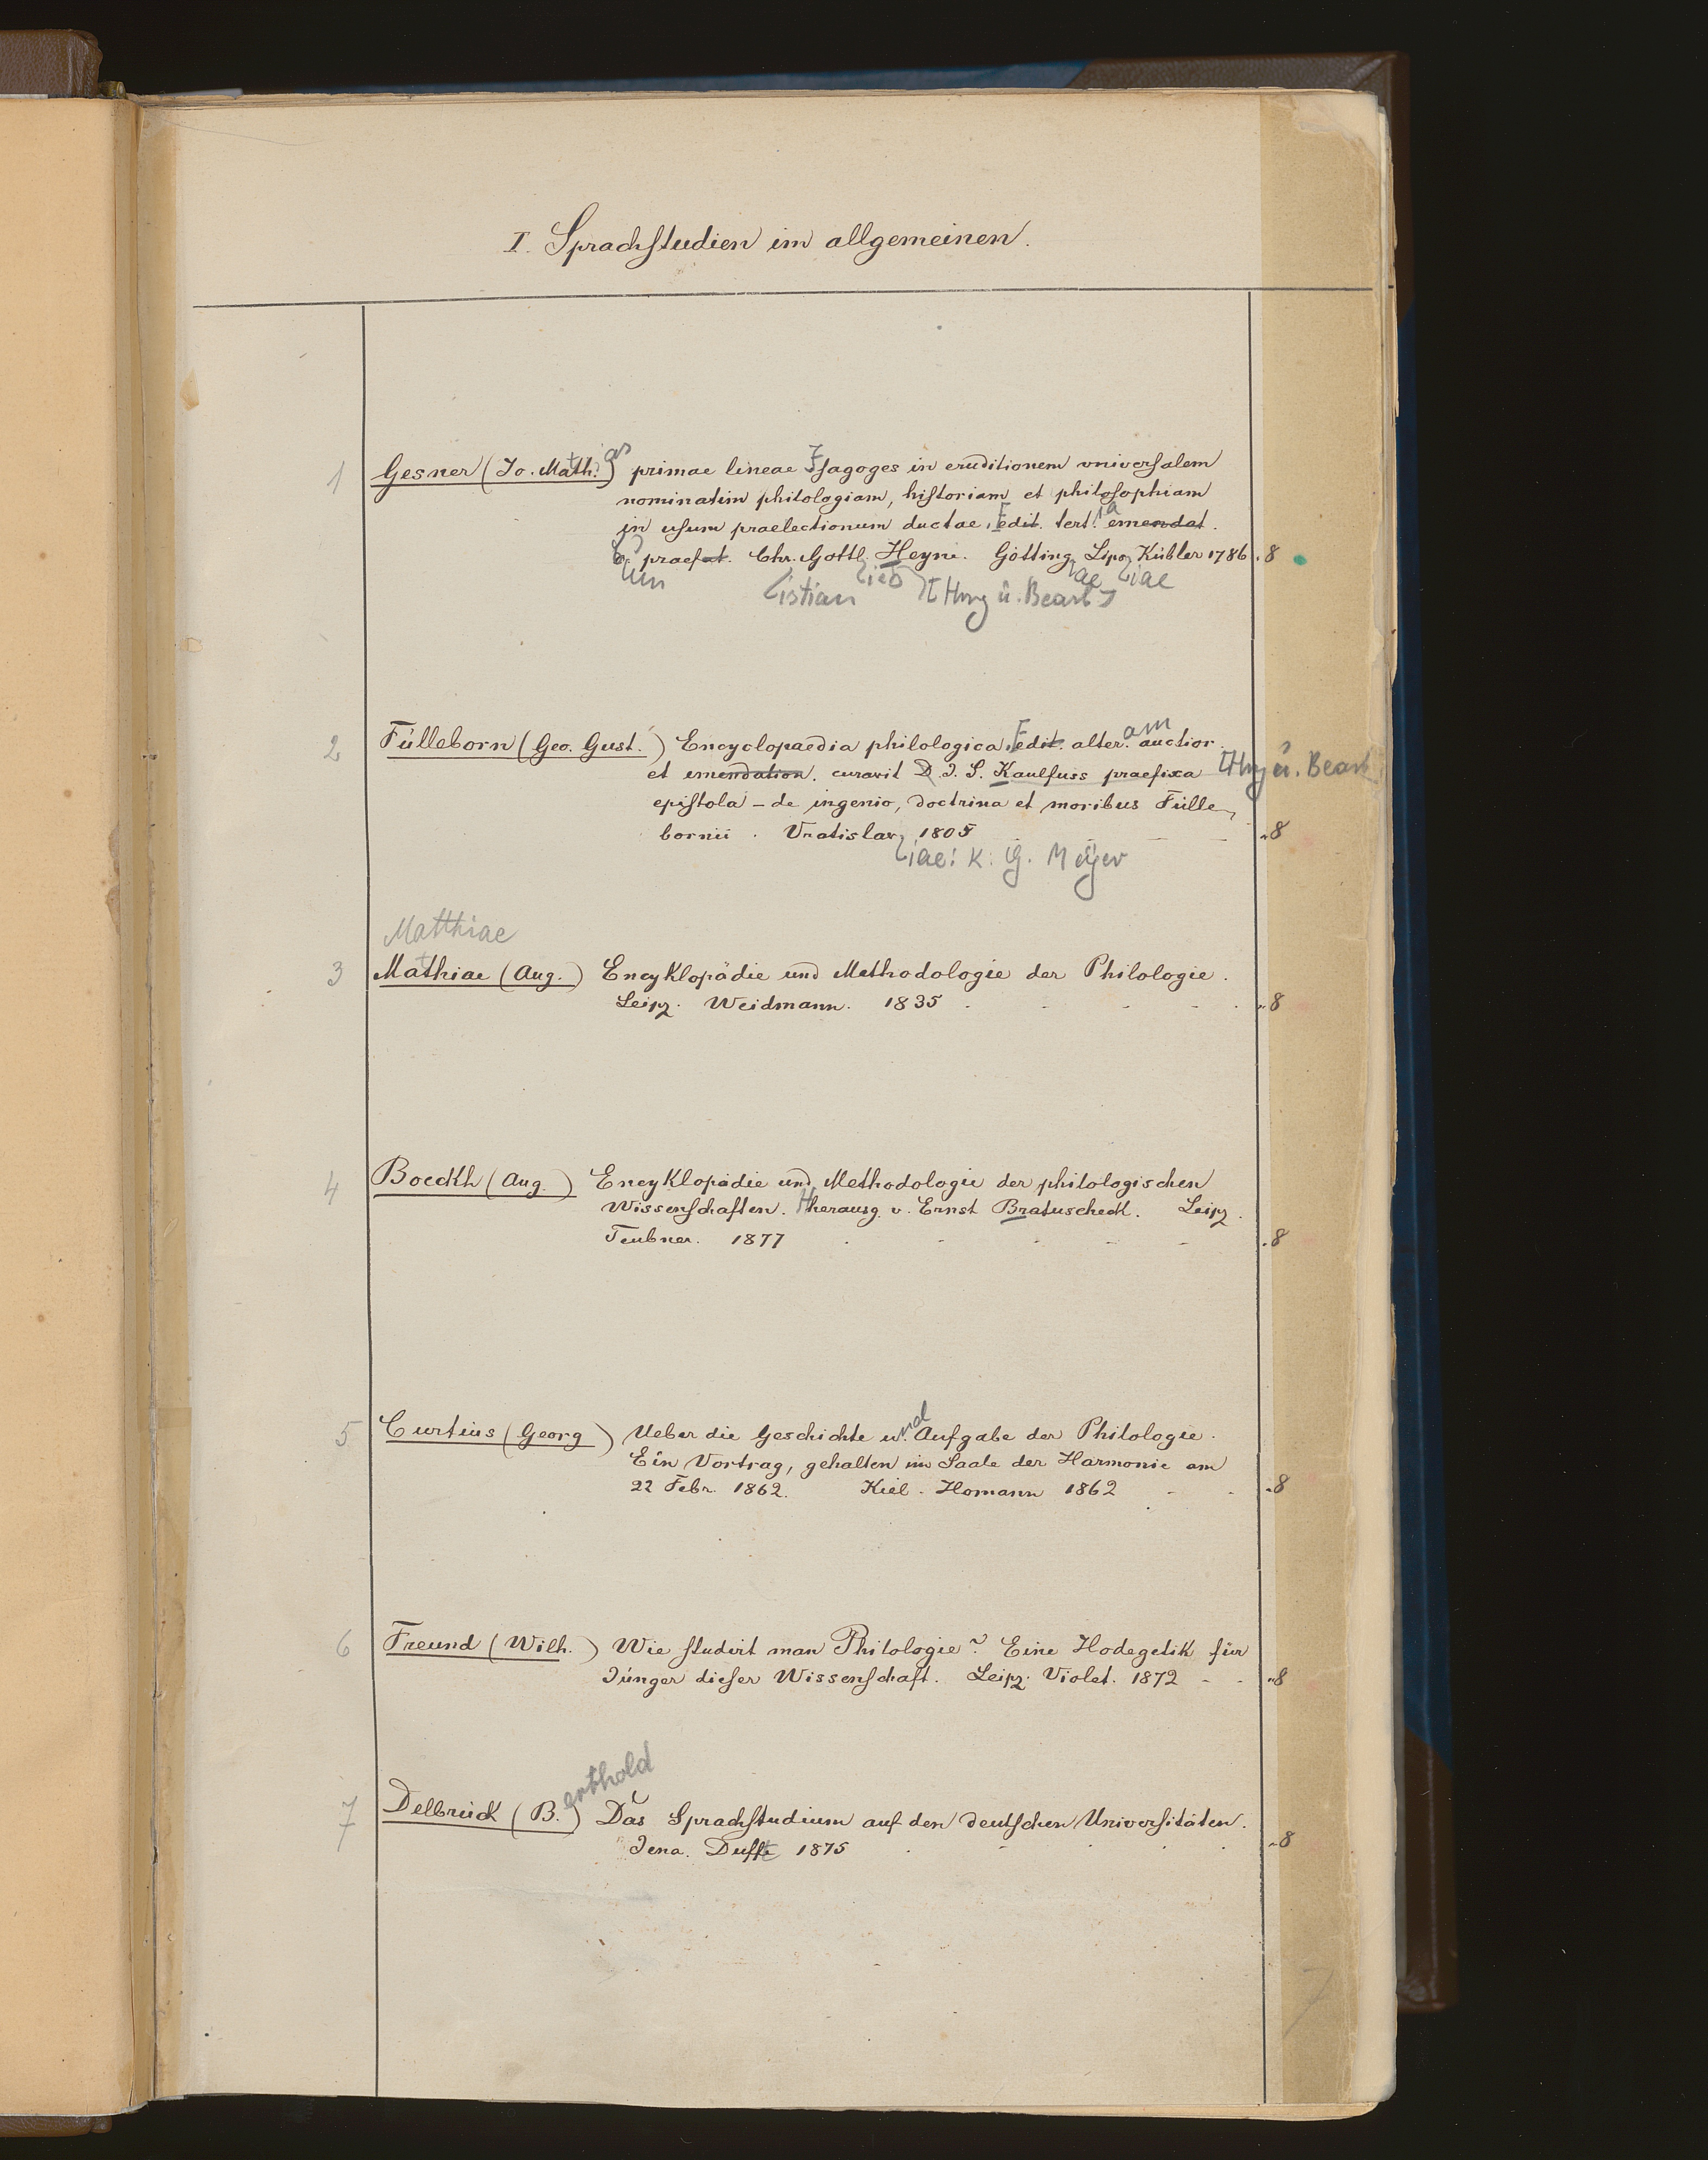 I. Sprachstudien im allgemeinen.
1 Gesner (Jo. Math.) primae lineae Isagoges in eruditionem universalem
nominatim philologiam, historiam et philosophiam
in usum praelectionum ductae, edit. tert. emendat.
c. praefat. Chr. Gottl. Heyne. Götting. Lips. Kübler 1786. 8
um istian ieb [Hrsg u. Bearb] ae iae
2 Fülleborn (Geo. Gust.) Encyclopaedia philologica, edit. alter. auctior.
et emendation. curavit D. J. S. Kaulfuss praefixa [Hrsg u. Bearb
epistola – de ingenio, doctrina et moribus Fülle-
bornii. Vratislav. 1805 - - - 8
iae: K. G. Meyer
Matthiae
3 Mathiae (Aug.) Encyklopädie und Methodologie der Philologie.
Leipz. Weidmann. 1835 . - - - 8
4 Boeckh (Aug.) Encyklopädie und Methodologie der philologischen
Wissenschaften. Herausg. v. Ernst Bratuscheck. Leipz.
Teubner. 1877 . - - - - 8
5 Curtius (Georg) Ueber die Geschichte und Aufgabe der Philologie.
Ein Vortrag, gehalten im Saale der Harmonie am
22 Febr. 1862. Kiel. Homann 1862 - - 8
6 Freund (Wilh.) Wie studirt man Philologie? Eine Hodegetik für
Jünger dieser Wissenschaft. Leipz. Violet. 1872 - - 8
7 Delbrück (B.erthold) Das Sprachstudium auf den deutschen Universitäten.
Jena. Dufft 1875 . - - . . 8
7